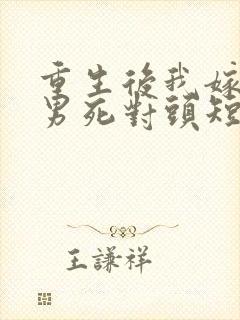 重生後我嫁
男死對頭短
王謙祥